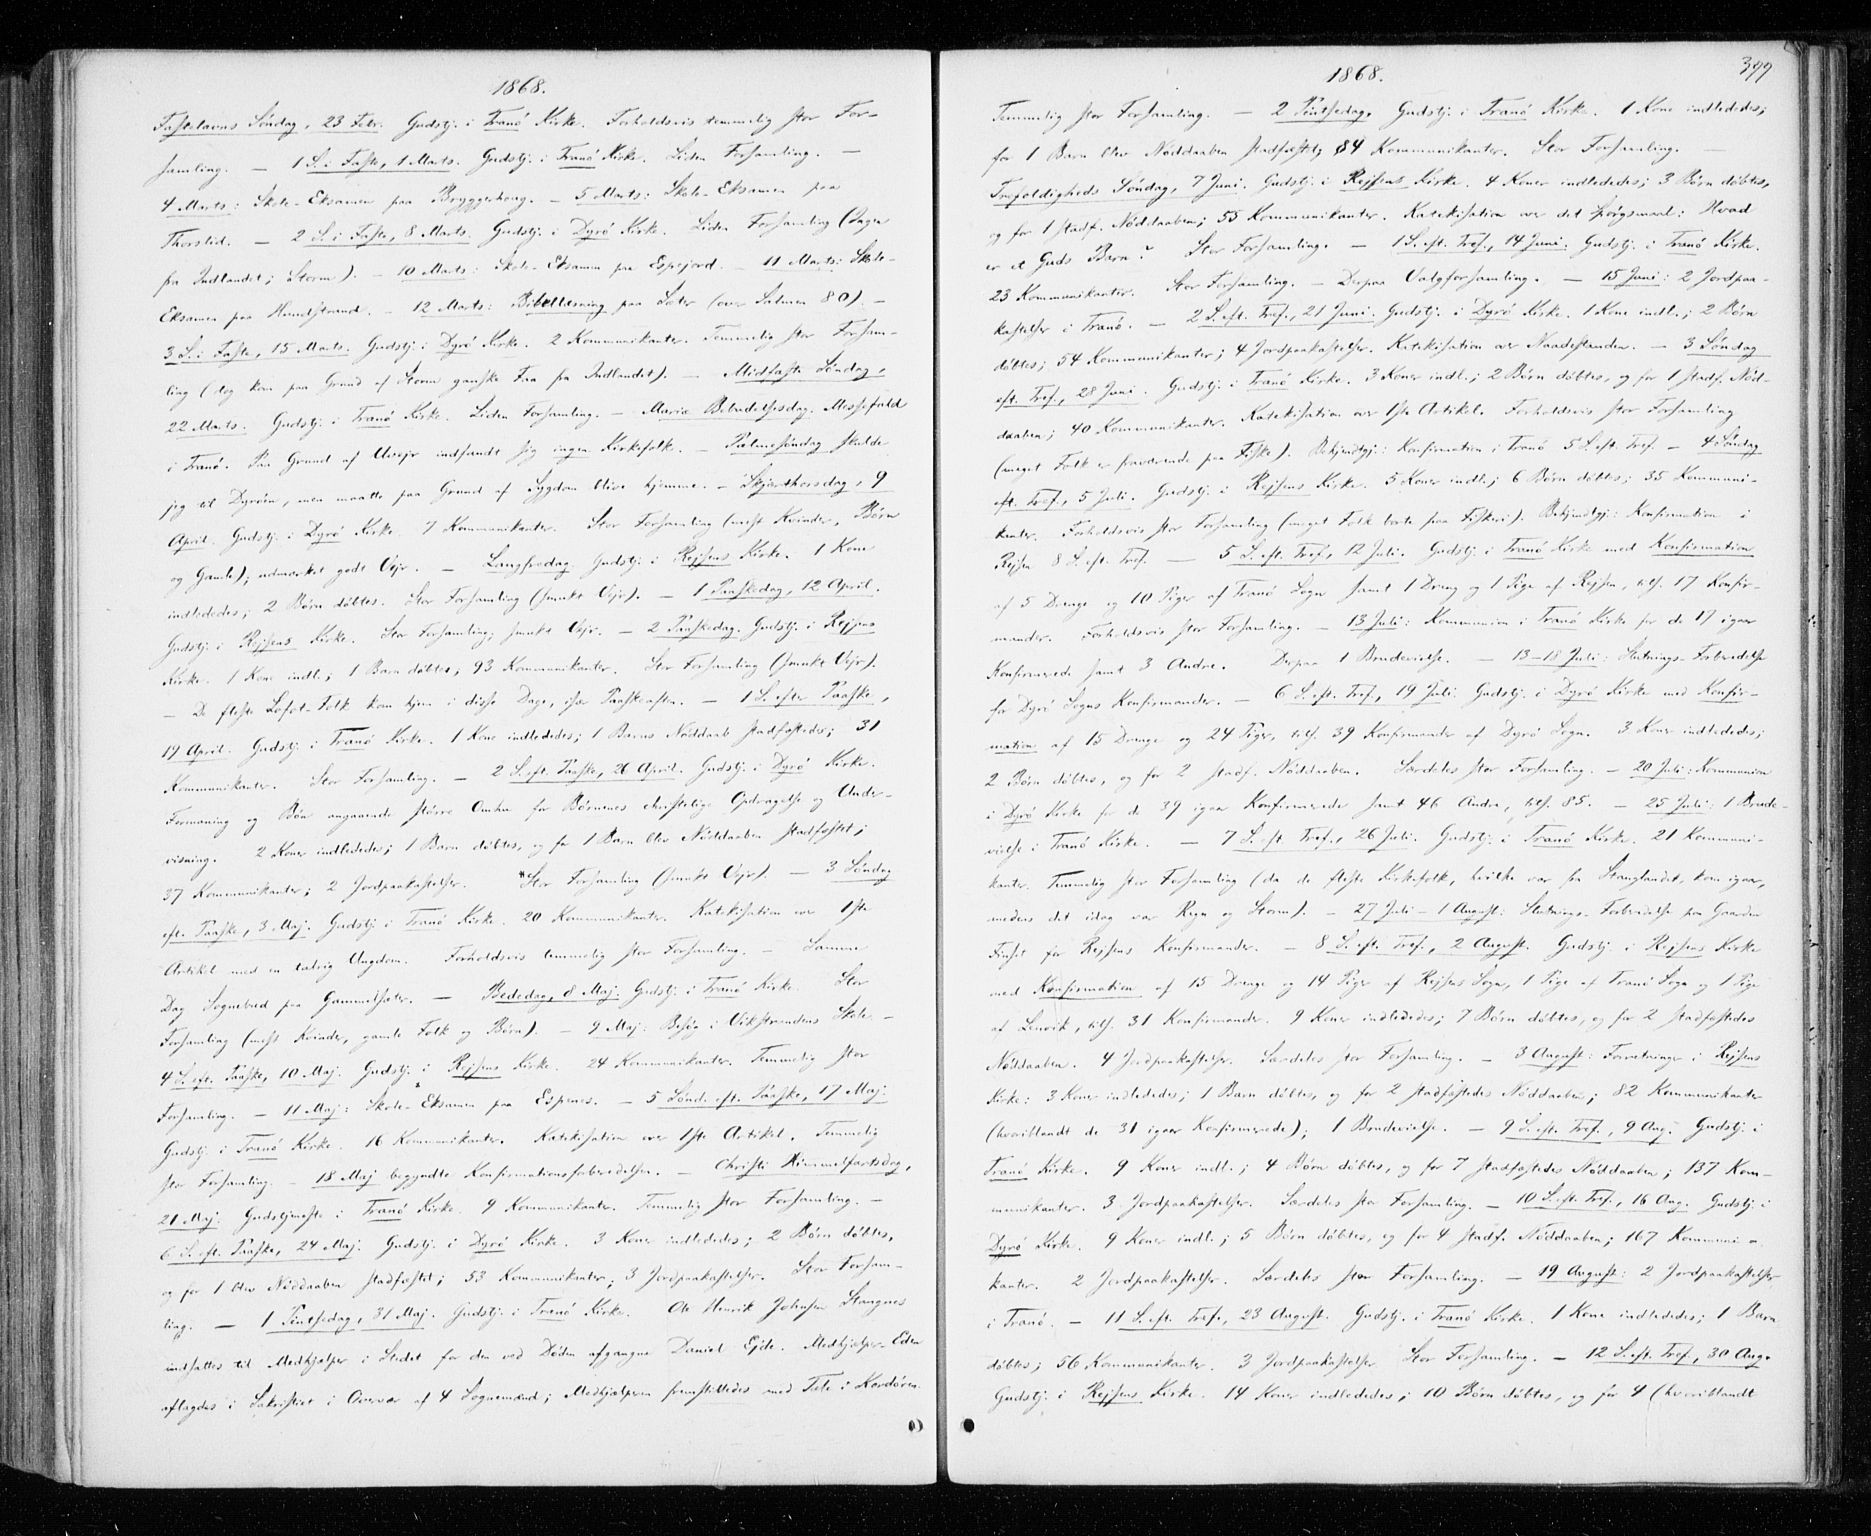 1868.
Fastelavns Söndag, 23 Febr. Gudstj. i Tranö Kirke. Forholdsvis temmelig stor For-
samling. — 1 S. i Faste, 1 Marts. Gudstj. i Tranö Kirke. Liden Forsamling. —
4 Marts: Skole-Eksamen paa Bryggerhaug. — 5 Marts: Skole-Eksamen paa
Thorslid. — 2 S. i Faste, 8 Marts. Gudstj. i Dyrö Kirke. Liden Forsamling (Ingen
fra Indlandet; Storm). — 10 Marts: Skole-Eksamen paa Espejord. — 11 Marts: Skole-
Eksamen paa Hundstrand. — 12 Marts: Bibellæsning paa Sæter (over Salmen 80). —
3 S. i Faste, 15 Marts. Gudstj. i Dyrö Kirke. 2 Kommunikanter. Temmelig stor Forsam-
ling (dog kom paa Grund af Storm ganske Faa fra Indlandet). — Midfaste Söndag,
22 Marts. Gudstj. i Tranö Kirke. Liden Forsamling. — Mariæ Bebudelsesdag. Messefald
i Tranö. Paa Grund af Uvejr indfandt sig ingen Kirkefolk. — Palmesöndag skulde
jeg til Dyröen, men maatte paa Grund af Sygdom blive hjemme. — Skjærthorsdag, 9
April. Gudstj. i Dyrö Kirke. 7 Kommunikanter. Stor Forsamling (mest Kvinder, Börn
og Gamle); udmærket godt Vejr. — Langfredag. Gudstj. i Rejsens Kirke. 1 Kone
indlededes; 2 Börn döbtes. Stor Forsamling (smukt Vejr). — 1 Paaskedag, 12 April.
Gudstj. i Rejsens Kirke. Stor Forsamling; smukt Vejr. — 2 Paaskedag. Gudstj. i Rejsens
Kirke. 1 Kone indl.; 1 Barn döbtes; 93 Kommunikanter. Stor Forsamling (smukt Vejr).
— De fleste Lofot-Folk kom hjem i disse Dage, især Paaskeaften. — 1 S. efter Paaske,
19 April. Gudstj. i Tranö Kirke. 1 Kone indlededes; 1 Barns Nöddaab stadfæstedes; 31
Kommunikanter. Stor Forsamling. — 2 S. eft. Paaske, 26 April. Gudstj. i Dyrö Kirke.
Formaning og Bön angaaende större Omhu for Börnenes christelige Opdragelse og Under-
visning. 2 Koner indlededes; 1 Barn döbtes, og for 1 Barn blev Nöddaaben stadfæstet;
37 Kommunikanter; 2 Jordpaakastelser. Stor Forsamling (smukt Vejr). — 3 Söndag
eft. Paaske, 3 Maj. Gudstj. i Tranö Kirke. 20 Kommunikanter. Katekisation over 1ste
Artikel med en talrig Ungdom. Forholdsvis temmelig stor Forsamling. — Samme
Dag Sognebud paa Gammelsæter. — Bededag, 8 Maj. Gudstj. i Tranö Kirke. Stor
Forsamling (mest Kvinder, gamle Folk og Börn). — 9 Maj: Besög i Vikstrandens Skole. —
4 S. eft. Paaske, 10 Maj. Gudstj. i Rejsens Kirke. 24 Kommunikanter. Temmelig stor
Forsamling. — 11 Maj: Skole-Eksamen paa Espenes. — 5 Sönd. eft. Paaske, 17 Maj.
Gudstj. i Tranö Kirke. 16 Kommunikanter. Katekisation over 1ste Artikel. Temmelig
stor Forsamling. — 18 Maj begyndte Konfirmationsforberedelsen. — Christi Himmelfartsdag,
21 Maj. Gudstjeneste i Tranö Kirke. 9 Kommunikanter. Temmelig stor Forsamling. —
6 S. eft. Paaske, 24 Maj. Gudstj. i Dyrö Kirke. 3 Koner indlededes; 2 Börn döbtes,
og for 1 blev Nöddaaben stadfæstet; 53 Kommunikanter; 3 Jordpaakastelser. Stor Forsam-
ling. — 1 Pintsedag, 31 Maj. Gudstj. i Tranö Kirke. Ole Henrik Johnsen Stangnes
indsattes til Medhjælper i Stedet for den ved Döden afgangne Daniel Ejde. Medhjælper-Eden
aflagdes i Sakristiet i Overvær af 4 Sognemænd; Medhjælperen fremstilledes med Tale i Kordören.
1868.
399
Temmelig stor Forsamling. — 2 Pintsedag. Gudstj. i Tranö Kirke. 1 Kone indlededes;
for 1 Barn blev Nöddaaben stadfæstet; 84 Kommunikanter. Stor Forsamling. —
Trefoldigheds Söndag, 7 Juni. Gudstj. i Rejsens Kirke. 4 Koner indlededes; 3 Börn döbtes,
og for 1 stadf. Nöddaaben; 55 Kommunikanter. Katekisation over det Spörgsmaal: Hvad
er et Guds Barn? Stor Forsamling. — 1 S. eft. Tref., 14 Juni. Gudstj. i Tranö Kirke.
23 Kommunikanter. Stor Forsamling. — Derpaa Valgforsamling. — 15 Juni: 2 Jordpaa-
kastelser i Tranö. — 2 S. eft. Tref., 21 Juni. Gudstj. i Dyrö Kirke. 1 Kone indl.; 2 Börn
döbtes; 54 Kommunikanter; 4 Jordpaakastelser. Katekisation over Naadestanden. — 3 Söndag
eft. Tref., 28 Juni. Gudstj. i Tranö Kirke. 3 Koner indl.; 2 Börn döbtes, og for 1 stadf. Nöd-
daaben; 40 Kommunikanter. Katekisation over 1ste Artikel. Forholdsvis stor Forsamling
(meget Folk er fraværende paa Fiske). Bekjendtgj.: Konfirmation i Tranö 5 S. eft. Tref. — 4 Söndag
eft. Tref., 5 Juli. Gudstj. i Rejsens Kirke. 5 Koner indl.; 6 Börn döbtes; 35 Kommuni-
kanter. Forholdsvis stor Forsamling (meget Folk borte paa Fiskeri). Bekjendtgj.: Konfirmation i
Rejsen 8 S. eft. Tref. — 5 S. eft. Tref., 12 Juli. Gudstj. i Tranö Kirke med Konfirmation
af 5 Drenge og 10 Piger af Tranö Sogn samt 1 Dreng og 1 Pige af Rejsen, tils. 17 Konfir-
mander. Forholdsvis stor Forsamling. — 13 Juli: Kommunion i Tranö Kirke for de 17 igaar
Konfirmerede samt 3 Andre. Derpaa 1 Brudevielse. — 13–18 Juli: Slutnings-Forberedelse
for Dyrö Sogns Konfirmander. — 6 S. eft. Tref., 19 Juli. Gudstj. i Dyrö Kirke med Konfir-
mation af 15 Drenge og 24 Piger, tils. 39 Konfirmander af Dyrö Sogn. 3 Koner indlededes;
2 Börn döbtes, og for 2 stadf. Nöddaaben. Særdeles stor Forsamling. — 20 Juli: Kommunion
i Dyrö Kirke for de 39 igaar Konfirmerede samt 46 Andre, tils. 85. — 25 Juli: 1 Brude-
vielse i Tranö Kirke. — 7 S. eft. Tref., 26 Juli. Gudstj. i Tranö Kirke. 21 Kommuni-
kanter. Temmelig stor Forsamling (da de fleste Kirkefolk, hvilke var fra Stanglandet, kom igaar,
medens det idag var Regn og Storm). — 27 Juli – 1 August: Slutnings-Forberedelse paa Gaarden
Finset for Rejsens Konfirmander. — 8 S. eft. Tref., 2 August. Gudstj. i Rejsens Kirke
med Konfirmation af 15 Drenge og 14 Piger af Rejsens Sogn, 1 Pige af Tranö Sogn og 1 Pige
af Lenvik, tils. 31 Konfirmander. 9 Koner indlededes; 7 Börn döbtes, og for 2 stadfæstedes
Nöddaaben. 4 Jordpaakastelser. Særdeles stor Forsamling. — 3 August: Forretninger i Rejsens
Kirke: 3 Koner indlededes; 1 Barn döbtes, og for 2 stadfæstedes Nöddaaben; 82 Kommunikanter
(hvoriblandt de 31 igaar Konfirmerede); 1 Brudevielse. — 9 S. eft. Tref., 9 Aug. Gudstj. i
Tranö Kirke. 9 Koner indl.; 4 Börn döbtes, og for 7 stadfæstedes Nöddaaben; 137 Kom-
munikanter. 3 Jordpaakastelser. Særdeles stor Forsamling. — 10 S. eft. Tref., 16 Aug. Gudstj. i
Dyrö Kirke. 9 Koner indl.; 5 Börn döbtes, og for 4 stadf. Nöddaaben; 167 Kommuni-
kanter. 2 Jordpaakastelser. Særdeles stor Forsamling. — 19 August: 2 Jordpaakastelser
i Tranö. — 11 S. eft. Tref., 23 August. Gudstj. i Tranö Kirke. 1 Kone indlededes; 1 Barn
döbtes; 56 Kommunikanter. 3 Jordpaakastelser. Stor Forsamling. — 12 S. eft. Tref., 30 Aug.
Gudstj. i Rejsens Kirke. 14 Koner indlededes; 10 Börn döbtes, og for 4 (hvoriblandt